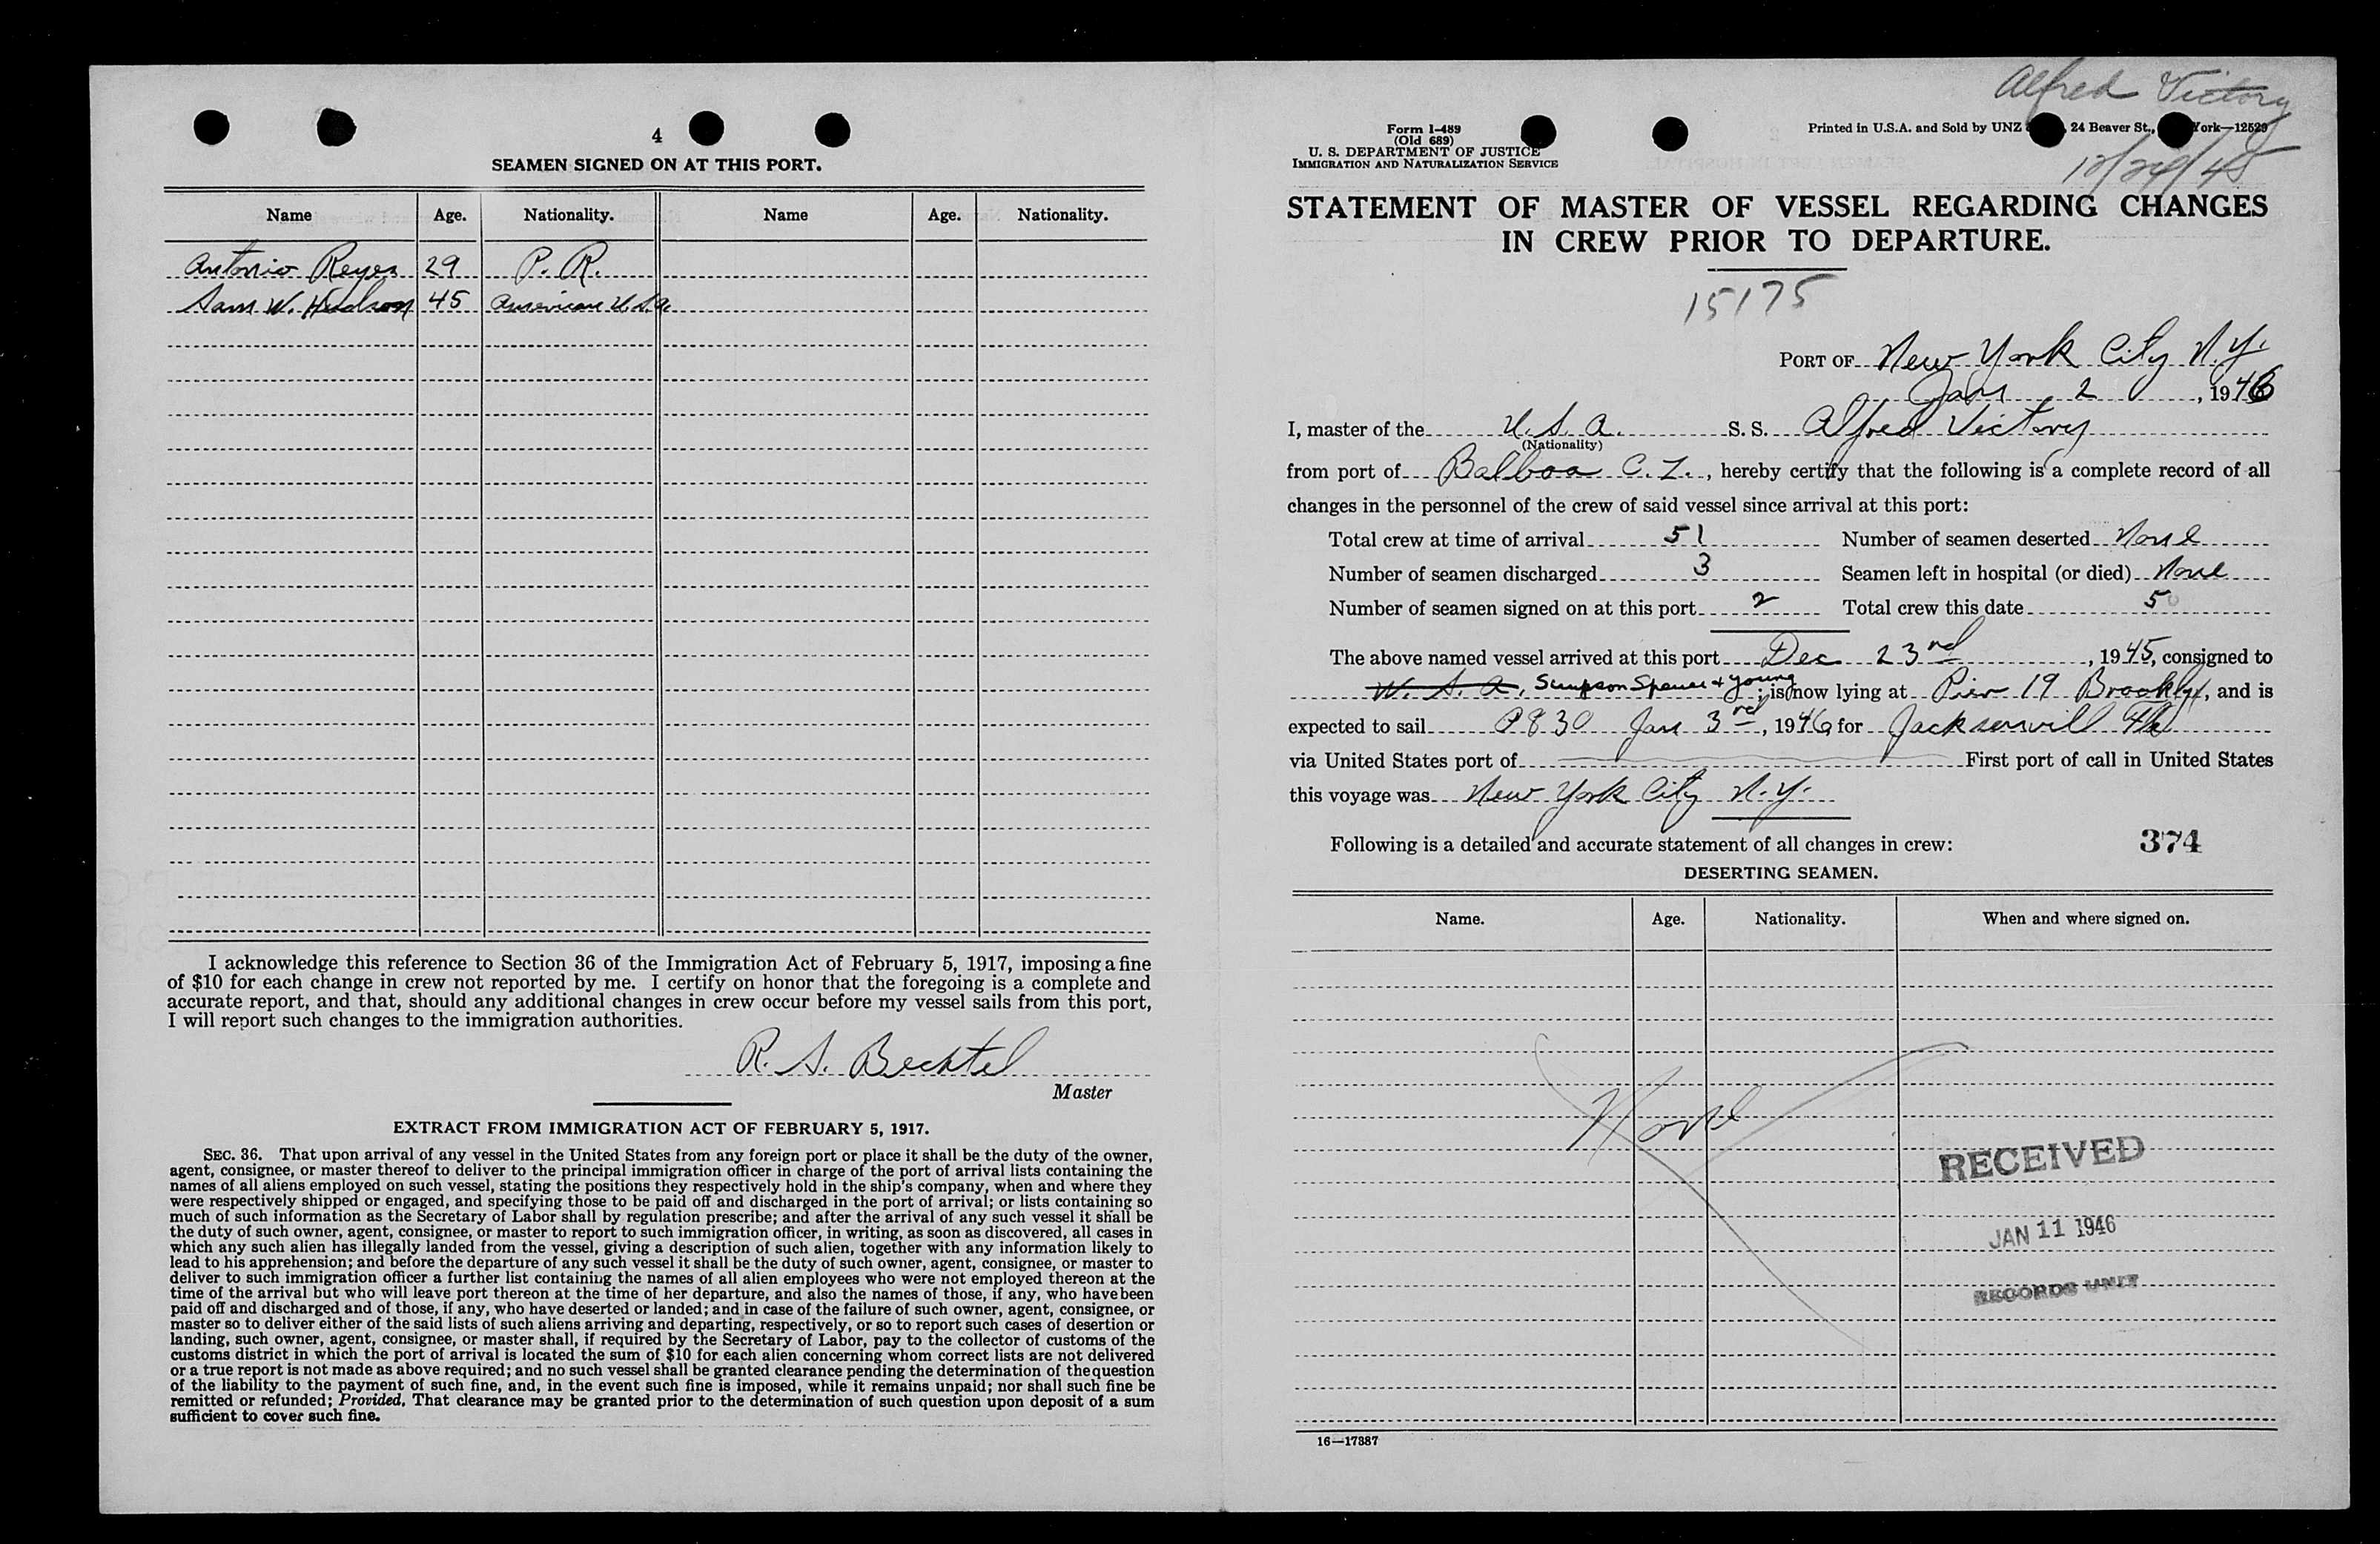 4
SEAMEN SIGNED ON AT THIS PORT.
Name Age. Nationality. Name Age. Nationality.
Antonio Reyes 29 P. R.
Sam W. Hudson 45 American U.S.A.
I acknowledge this reference to Section 36 of the Immigration Act of February 5, 1917, imposing a fine
of $10 for each change in crew not reported by me. I certify on honor that the foregoing is a complete and
accurate report, and that, should any additional changes in crew occur before my vessel sails from this port,
I will report such changes to the immigration authorities.
R. S. Bechtel
Master
EXTRACT FROM IMMIGRATION ACT OF FEBRUARY 5, 1917.
SEC. 36. That upon arrival of any vessel in the United States from any foreign port or place it shall be the duty of the owner,
agent, consignee, or master thereof to deliver to the principal immigration officer in charge of the port of arrival lists containing the
names of all aliens employed on such vessel, stating the positions they respectively hold in the ship's company, when and where they
were respectively shipped or engaged, and specifying those to be paid off and discharged in the port of arrival; or lists containing so
much of such information as the Secretary of Labor shall by regulation prescribe; and after the arrival of any such vessel it shall be
the duty of such owner, agent, consignee, or master to report to such immigration officer, in writing, as soon as discovered, all cases in
which any such alien has illegally landed from the vessel, giving a description of such alien, together with any information likely to
lead to his apprehension; and before the departure of any such vessel it shall be the duty of such owner, agent, consignee, or master to
deliver to such immigration officer a further list containing the names of all alien employees who were not employed thereon at the
time of the arrival but who will leave port thereon at the time of her departure, and also the names of those, if any, who have been
paid off and discharged and of those, if any, who have deserted or landed; and in case of the failure of such owner, agent, consignee, or
master so to deliver either of the said lists of such aliens arriving and departing, respectively, or so to report such cases of desertion or
landing, such owner, agent, consignee, or master shall, if required by the Secretary of Labor, pay to the collector of customs of the
customs district in which the port of arrival is located the sum of $10 for each alien concerning whom correct lists are not delivered
or a true report is not made as above required; and no such vessel shall be granted clearance pending the determination of the question
of the liability to the payment of such fine, and, in the event such fine is imposed, while it remains unpaid; nor shall such fine be
remitted or refunded; Provided, That clearance may be granted prior to the determination of such question upon deposit of a sum
sufficient to cover such fine.
Alfred Victory
12/24/45
Form I-489
(Old 689)
U. S. DEPARTMENT OF JUSTICE
IMMIGRATION AND NATURALIZATION SERVICE
Printed in U.S.A. and Sold by UNZ 24 Beaver St., York—12529
STATEMENT OF MASTER OF VESSEL REGARDING CHANGES
IN CREW PRIOR TO DEPARTURE.
15175
PORT OF New York City N.Y.
Jan 2, 1946
I, master of the U. S. A. S. S. Alfred Victory
(Nationality)
from port of Balboa C. Z., hereby certify that the following is a complete record of all
changes in the personnel of the crew of said vessel since arrival at this port:
Total crew at time of arrival 51 Number of seamen deserted None
Number of seamen discharged 3 Seamen left in hospital (or died) None
Number of seamen signed on at this port 2 Total crew this date 50
The above named vessel arrived at this port Dec 23rd, 1945, consigned to
W. S. A, Simpson Spence & Young; is now lying at Pier 19 Brooklyn, and is
expected to sail 830 Jan 3rd, 1946 for Jacksonvill Fla
via United States port of First port of call in United States
this voyage was New York City N.Y.
Following is a detailed and accurate statement of all changes in crew:
374
DESERTING SEAMEN.
Name. Age. Nationality. When and where signed on.
None
RECEIVED
JAN 11 1946
RECORDS UNIT
16—17387